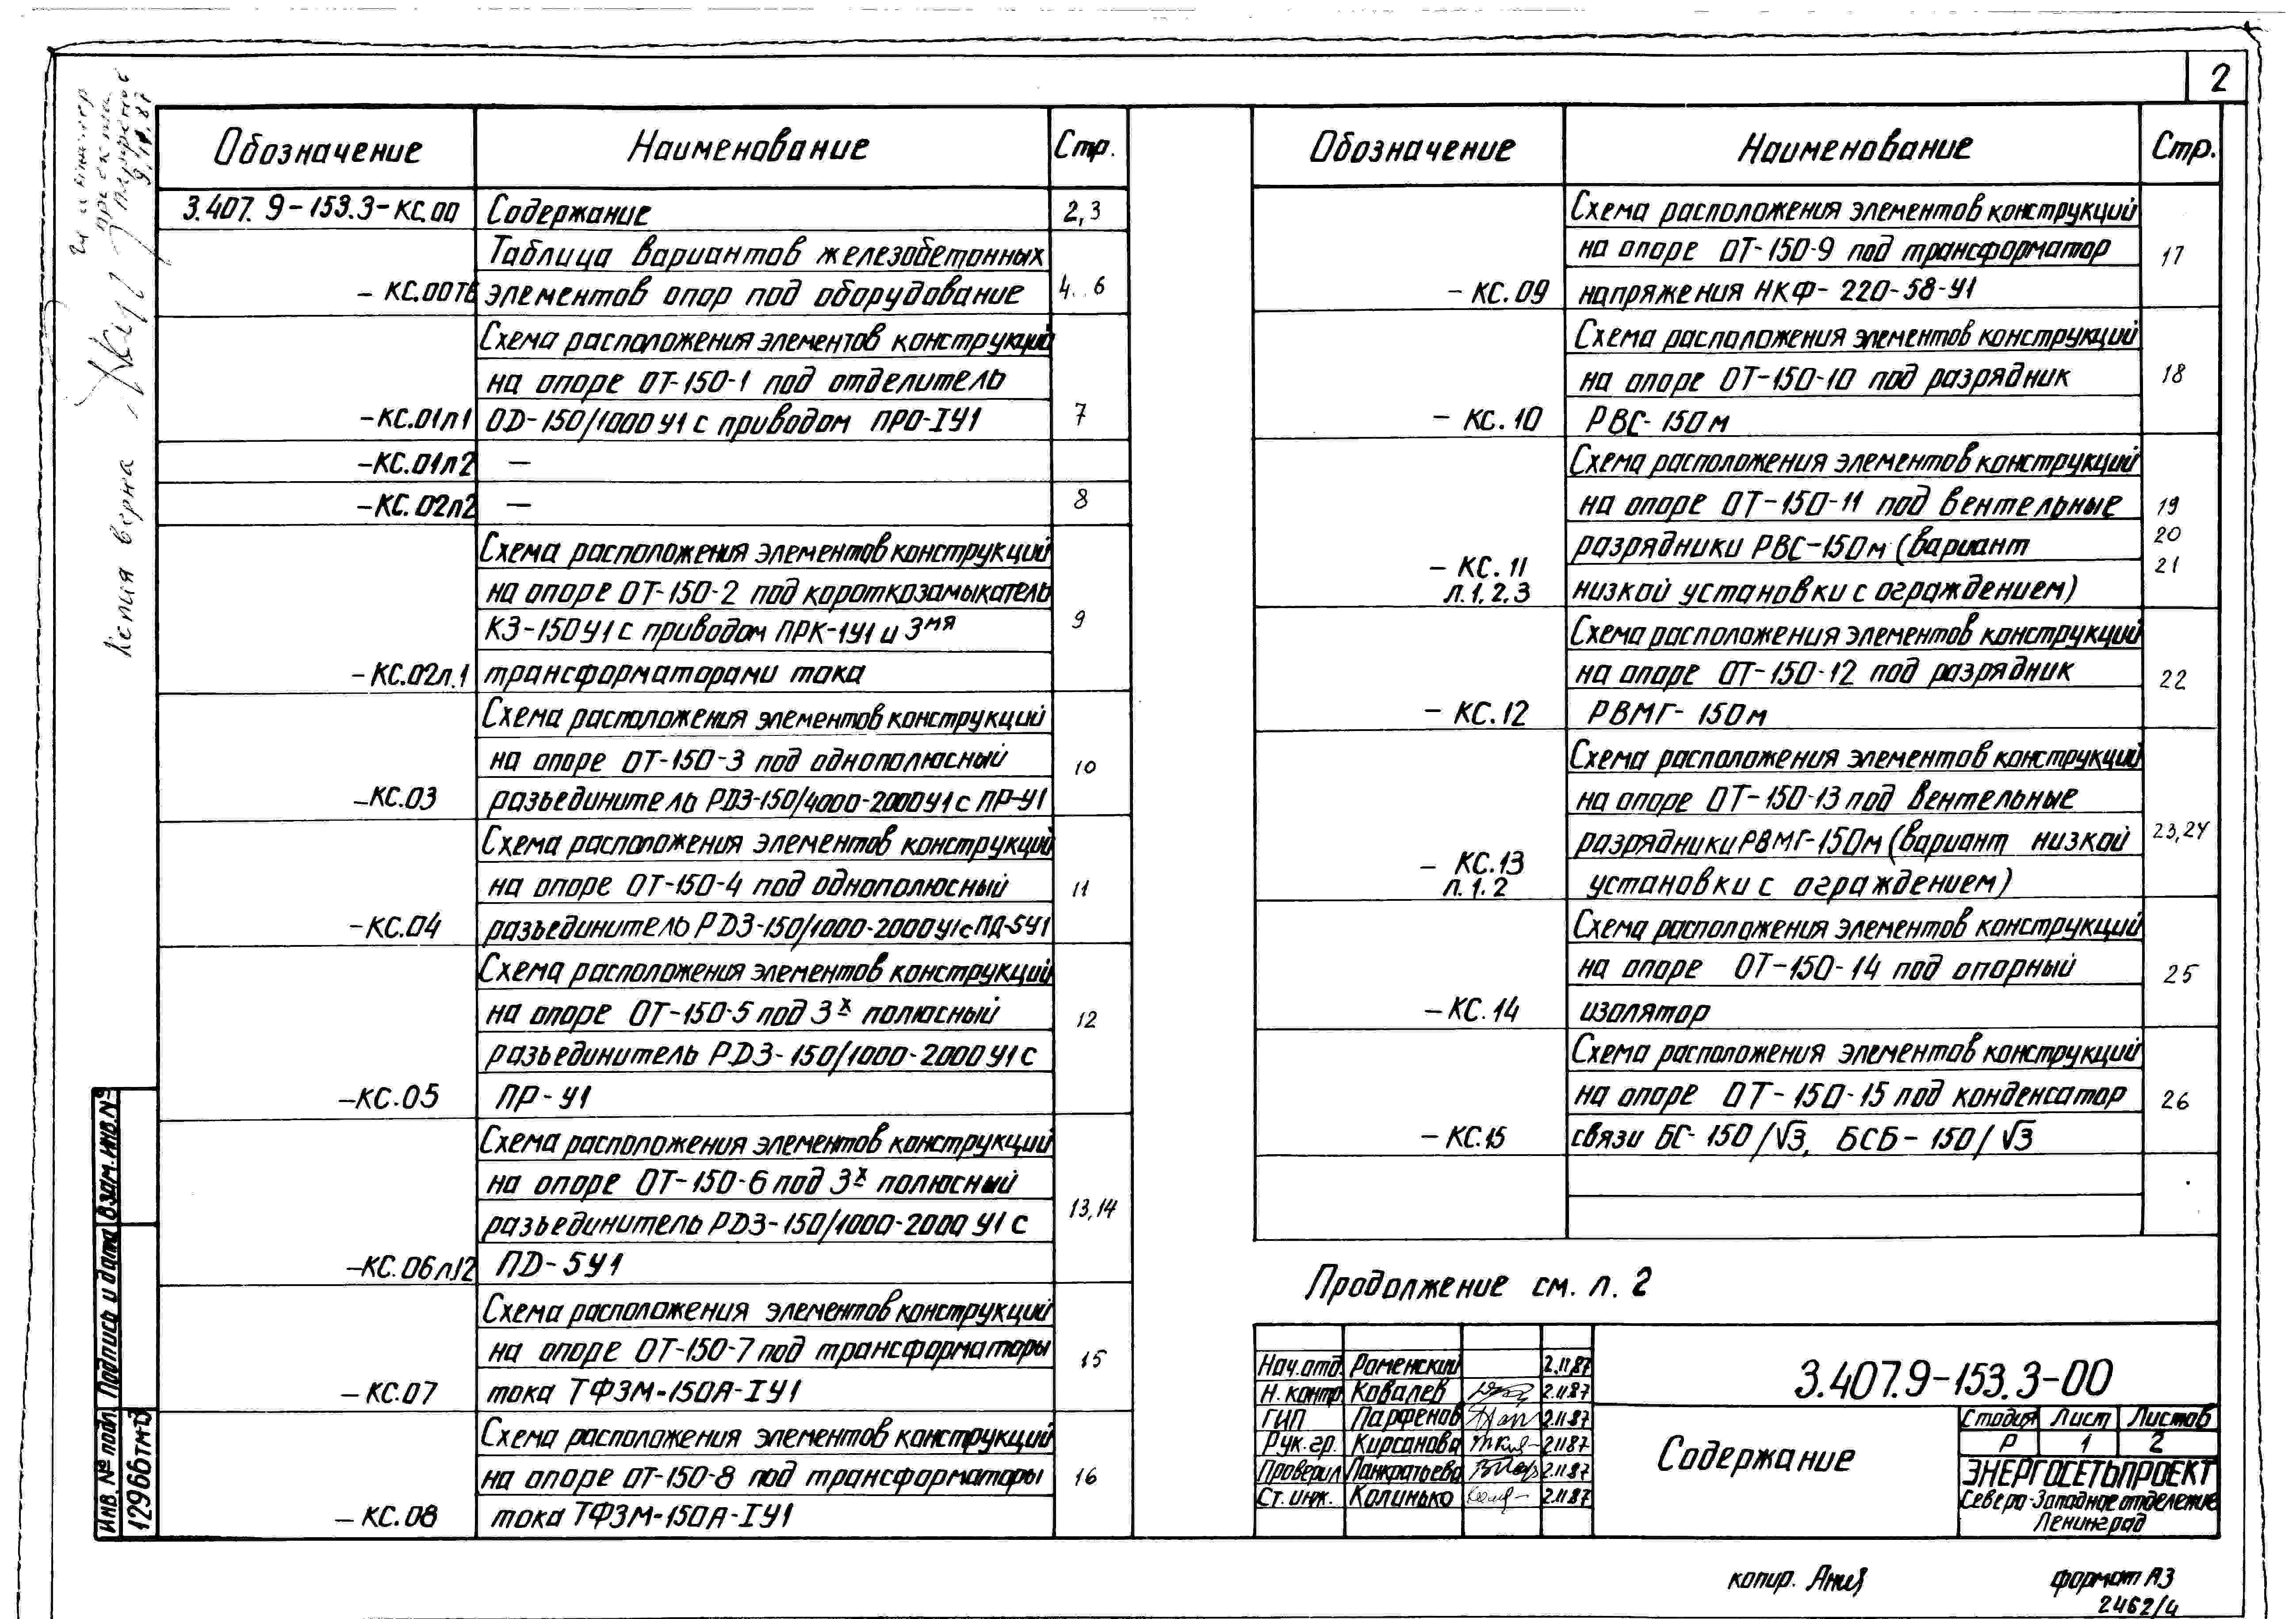 2
Обозначение Наименование Стр.
3.407.9-153.3-КС.00 Содержание 2,3
Таблица вариантов железобетонных
-КС.00ТВ элементов опор под оборудование 4...6
Схема расположения элементов конструкций
на опоре ОТ-150-1 под отделитель
-КС.01л1 ОД-150/1000У1 с приводом ПРО-IУ1 7
-КС.01л2 —
-КС.02л2 — 8
Схема расположения элементов конструкций
на опоре ОТ-150-2 под короткозамыкатель
КЗ-150У1 с приводом ПРК-1У1 и 3мя 9
-КС.02л.1 трансформаторами тока
Схема расположения элементов конструкций
на опоре ОТ-150-3 под однополюсный 10
-КС.03 разъединитель РДЗ-150/4000-2000У1 с ПР-У1
Схема расположения элементов конструкций
на опоре ОТ-150-4 под однополюсный 11
-КС.04 разъединитель РДЗ-150/1000-2000У1 с ПД-5У1
Схема расположения элементов конструкций
на опоре ОТ-150-5 под 3х полюсный 12
разъединитель РДЗ-150/1000-2000У1 с
-КС.05 ПР-У1
Схема расположения элементов конструкций
на опоре ОТ-150-6 под 3х полюсный
разъединитель РДЗ-150/1000-2000 У1 с 13,14
-КС.06л.12 ПД-5У1
Схема расположения элементов конструкций
на опоре ОТ-150-7 под трансформаторы 15
-КС.07 тока ТФЗМ-150А-IУ1
Схема расположения элементов конструкций
на опоре ОТ-150-8 под трансформаторы 16
-КС.08 тока ТФЗМ-150А-IУ1
Обозначение Наименование Стр.
Схема расположения элементов конструкций
на опоре ОТ-150-9 под трансформатор 17
-КС.09 напряжения НКФ-220-58-У1
Схема расположения элементов конструкций
на опоре ОТ-150-10 под разрядник 18
-КС.10 РВС-150м
Схема расположения элементов конструкций
на опоре ОТ-150-11 под вентельные 19
разрядники РВС-150м (вариант 20
-КС.11 21
л.1,2,3 низкой установки с ограждением)
Схема расположения элементов конструкций
на опоре ОТ-150-12 под разрядник 22
-КС.12 РВМГ-150м
Схема расположения элементов конструкций
на опоре ОТ-150-13 под вентельные
разрядники РВМГ-150м (вариант низкой 23,24
-КС.13
л.1.2 установки с ограждением)
Схема расположения элементов конструкций
на опоре ОТ-150-14 под опорный 25
-КС.14 изолятор
Схема расположения элементов конструкций
на опоре ОТ-150-15 под конденсатор 26
-КС.15 связи БС-150/√3, БСБ-150/√3
Продолжение см. л. 2
Нач.отд. Роменский 2.11.87
Н. контр. Ковалев 2.11.87
ГИП Парфенов 2.11.87
Рук.гр. Кирсанова 2.11.87
Проверил Панкратьева 2.11.87
Ст. инж. Калинько 2.11.87
3.407.9-153.3-00
Содержание
Стадия Лист Листов
Р 1 2
ЭНЕРГОСЕТЬПРОЕКТ
Северо-Западное отделение
Ленинград
копир.
формат А3
2462/4
Инв. № подл. Подпись и дата Взам.инв.№
12966тм
Копия верна
Гл инженер
проекта
Парфенов
9.11.87